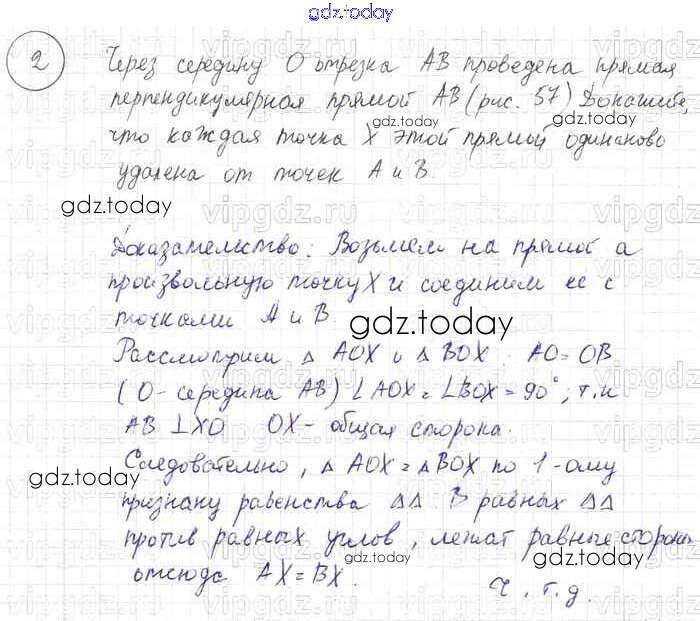 gdz.today
2 Через середину O отрезка AB проведена прямая
перпендикулярная прямой AB (рис. 57) Докажите,
gdz.today gdz.today
что каждая точка X этой прямой одинаково
удалена от точек A и B.
gdz.today
Доказательство: Возьмем на прямой a
произвольную точку X и соединим ее с
точками A и B.
gdz.today
Рассмотрим △ AOX и △ BOX: AO = OB
(O - середина AB) ∠AOX = ∠BOX = 90°, т.к
AB ⊥ XO OX - общая сторона.
Следовательно, △ AOX = △ BOX по 1-ому
gdz.today
признаку равенства △△ В равных △△
gdz.today
против равных углов, лежат равные стороны
gdz.today gdz.today
отсюда AX = BX.
Ч.т.д.